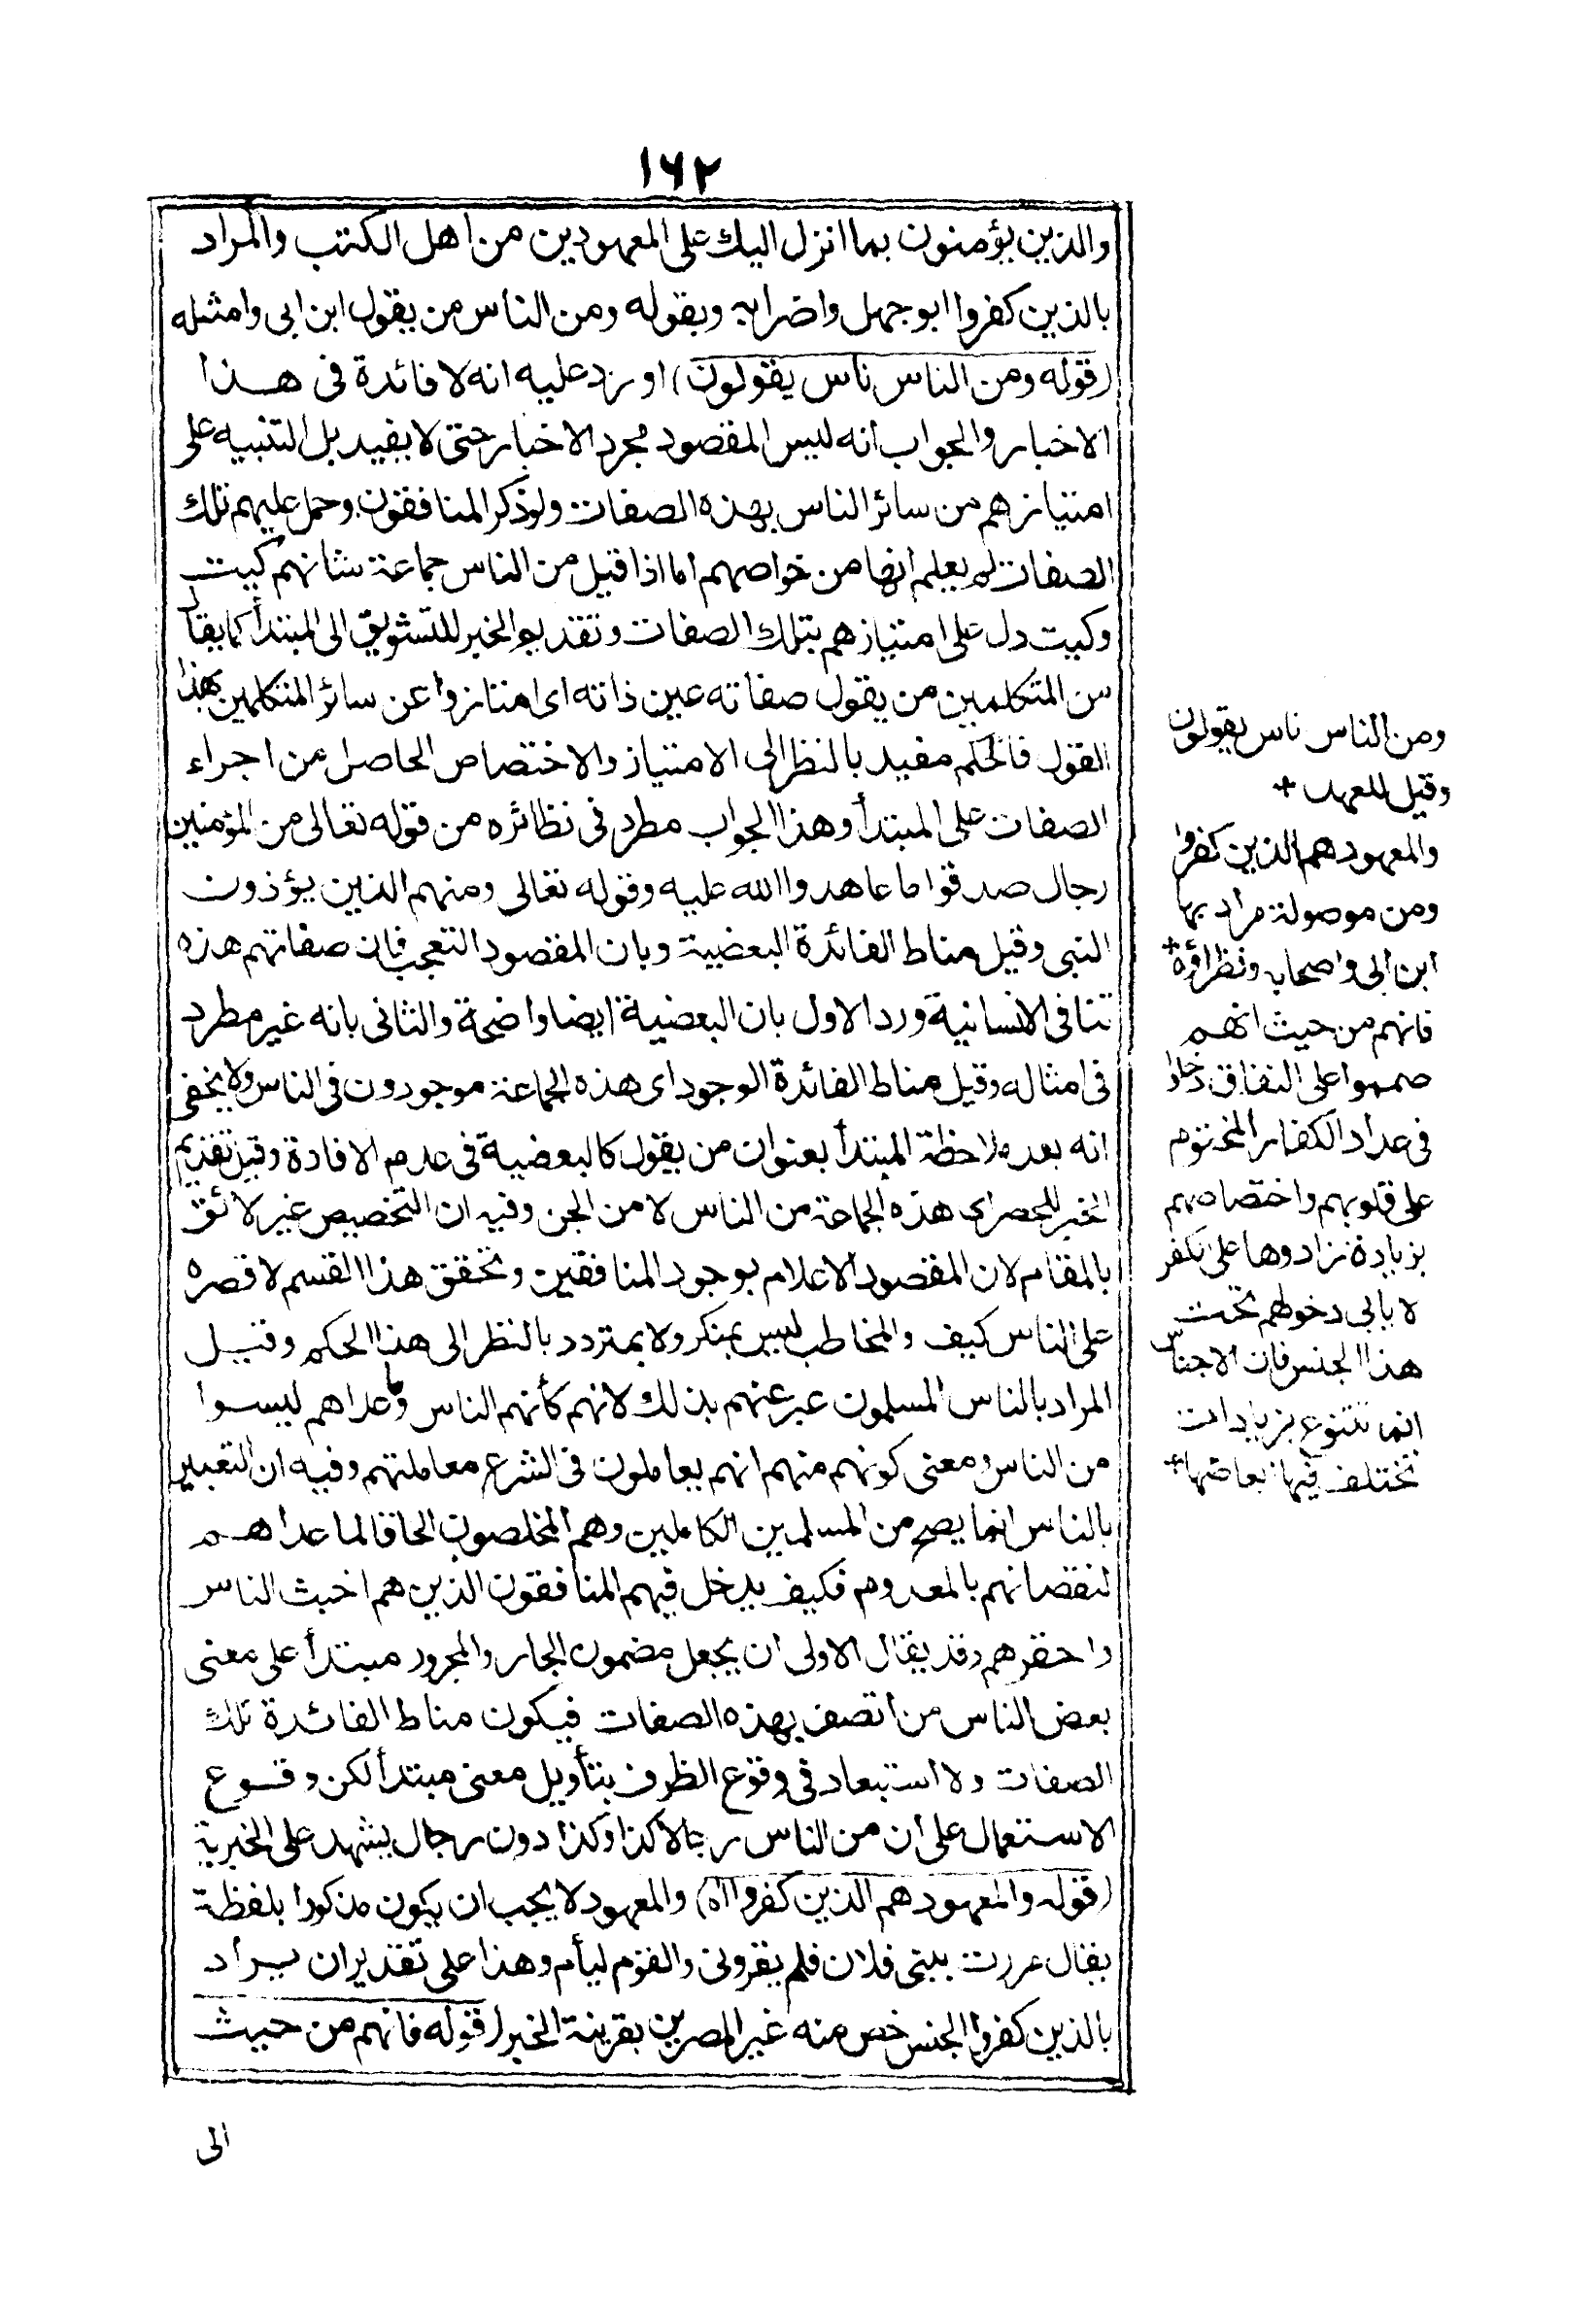 ١٦٢
والذين يؤمنون بما انزل اليك على المعهودين من اهل الكتب والمراد
بالذين كفروا ابو جهل واضرابه وبقوله ومن الناس من يقول ابن ابى وامثله
(قوله ومن الناس ناس يقولون) اورد عليه انه لا فائدة فى هذا
الاخبار والجواب انه ليس المقصود مجرد الاخبار حتى لا يفيد بل التنبيه على
امتيازهم من سائر الناس بهذه الصفات ولو ذكر المنافقون وحمل عليهم تلك
الصفات لم يعلم انها من خواصهم اما اذا قيل من الناس جماعة شانهم كيت
وكيت دل على امتيازهم بتلك الصفات وتقديم الخبر للتشويق الى المبتدأ كما يقال
من المتكلمين من يقول صفاته عين ذاته اى امتازوا عن سائر المتكلمين بهذا
القول فالحكم مفيد بالنظر الى الامتياز والاختصاص الحاصل من اجراء
الصفات على المبتدأ وهذا الجواب مطرد فى نظائره من قوله تعالى من المؤمنين
رجال صدقوا ما عاهدوا الله عليه وقوله تعالى ومنهم الذين يؤذون
النبى وقيل مناط الفائدة البعضية وبان المقصود التعجب فان صفاتهم هذه
تنافى الانسانية ورد الاول بان البعضية ايضا واضحة والثانى بانه غير مطرد
فى امثاله وقيل مناط الفائدة الوجود اى هذه الجماعة موجودون فى الناس ولا يخفى
انه بعد ملاحظة المبتدأ بعنوان من يقول كالبعضية فى عدم الافادة وقيل تقديم
الخبر للحصر اى هذه الجماعة من الناس لا من الجن وفيه ان التخصيص غير لائق
بالمقام لان المقصود الاعلام بوجود المنافقين وتحقق هذا القسم لا قصره
على الناس كيف والمخاطب ليس بمنكر ولا بمتردد بالنظر الى هذا الحكم وقيل
المراد بالناس المسلمون عبر عنهم بذلك لانهم كأنهم الناس وما عداهم ليسوا
من الناس ومعنى كونهم منهم انهم يعاملون فى الشرع معاملتهم وفيه ان التعبير
بالناس انما يصح من المسلمين الكاملين وهم المخلصون الحاقا لما عداهم
لنقصانهم بالمعدوم فكيف يدخل فيهم المنافقون الذين هم اخبث الناس
واحقرهم وقد يقال الاولى ان يجعل مضمون الجار والمجرور مبتدأ على معنى
بعض الناس من اتصف بهذه الصفات فيكون مناط الفائدة تلك
الصفات ولا استبعاد فى وقوع الظرف بتأويل معنى مبتدأ لكن وقوع
الاستعمال على ان من الناس رجالا كذا وكذا دون رجال يشهد على الخبرية
(قوله والمعهود هم الذين كفروا اه) والمعهود لا يجب ان يكون مذكورا بلفظة
يقال مررت ببنى فلان فلم يقرونى والقوم ليأم وهذا على تقدير ان يراد
بالذين كفروا الجنس خص منه غير المصرين بقرينة الخبر (قوله فانهم من حيث
الى
ومن الناس ناس يقولون
وقيل للعهد +
والمعهود هم الذين كفروا
ومن موصولة مراد بها
ابن ابى واصحابه ونظراؤه +
فانهم من حيث انهم
صمموا على النفاق دخلوا
فى عداد الكفار المختوم
على قلوبهم واختصاصهم
بزيادة زادوها على الكفر
لا يابى دخولهم تحت
هذا الجنس فان الاجناس
انما تتنوع بزيادات
تختلف فيها ابعاضها +